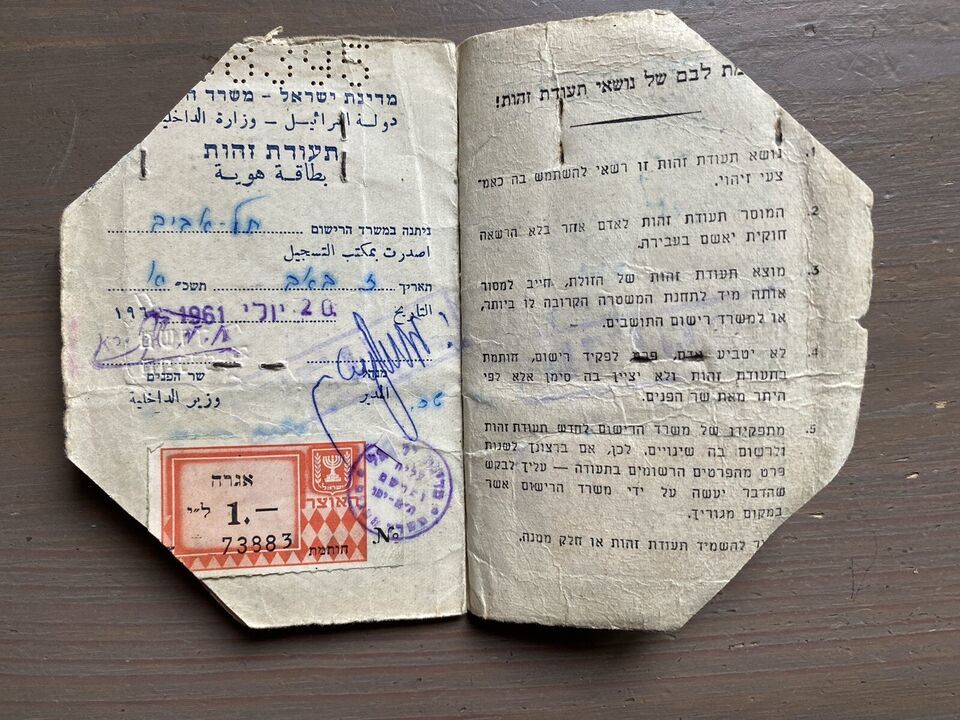 מדינת ישראל - משרד
دولة اسرائيل - وزارة
תעודת זהות
بطاقة هوية
ניתנה במשרד הרישום תל-אביב
اصدرت بمكتب التسجيل
תאריך ז באב תשכ"א
التاريخ 20 יולי 1961
שר הפנים
وزير الداخلية
אגרה
1.- ל"י
ישראל
אוצר
73883
חותמת
№
לבם של נושאי תעודת זהות!
1. נושא תעודת זהות זו רשאי להשתמש בה כאמ-
צעי זיהוי.
2. המוסר תעודת זהות לאדם אחר בלא הרשאה
חוקית יאשם בעבירת.
3. מוצא תעודת זהות של הזולת, חייב למסור
אותה מיד לתחנת המשטרה הקרובה לו ביותר,
או למשרד רישום התושבים.
4. לא יטביע אדם, פרט לפקיד רישום, חותמת
בתעודת זהות ולא יציין בה סימן אלא לפי
היתר מאת שר הפנים.
5. מתפקידו של משרד הרישום לחדש תעודת זהות
ולרשום בה שינויים, לכן, אם ברצונך לשנות
פרט מהפרטים הרשומים בתעודה — עליך לבקש
שהדבר יעשה על ידי משרד הרישום אשר
במקום מגוריך.
להשמיד תעודת זהות או חלק ממנה.